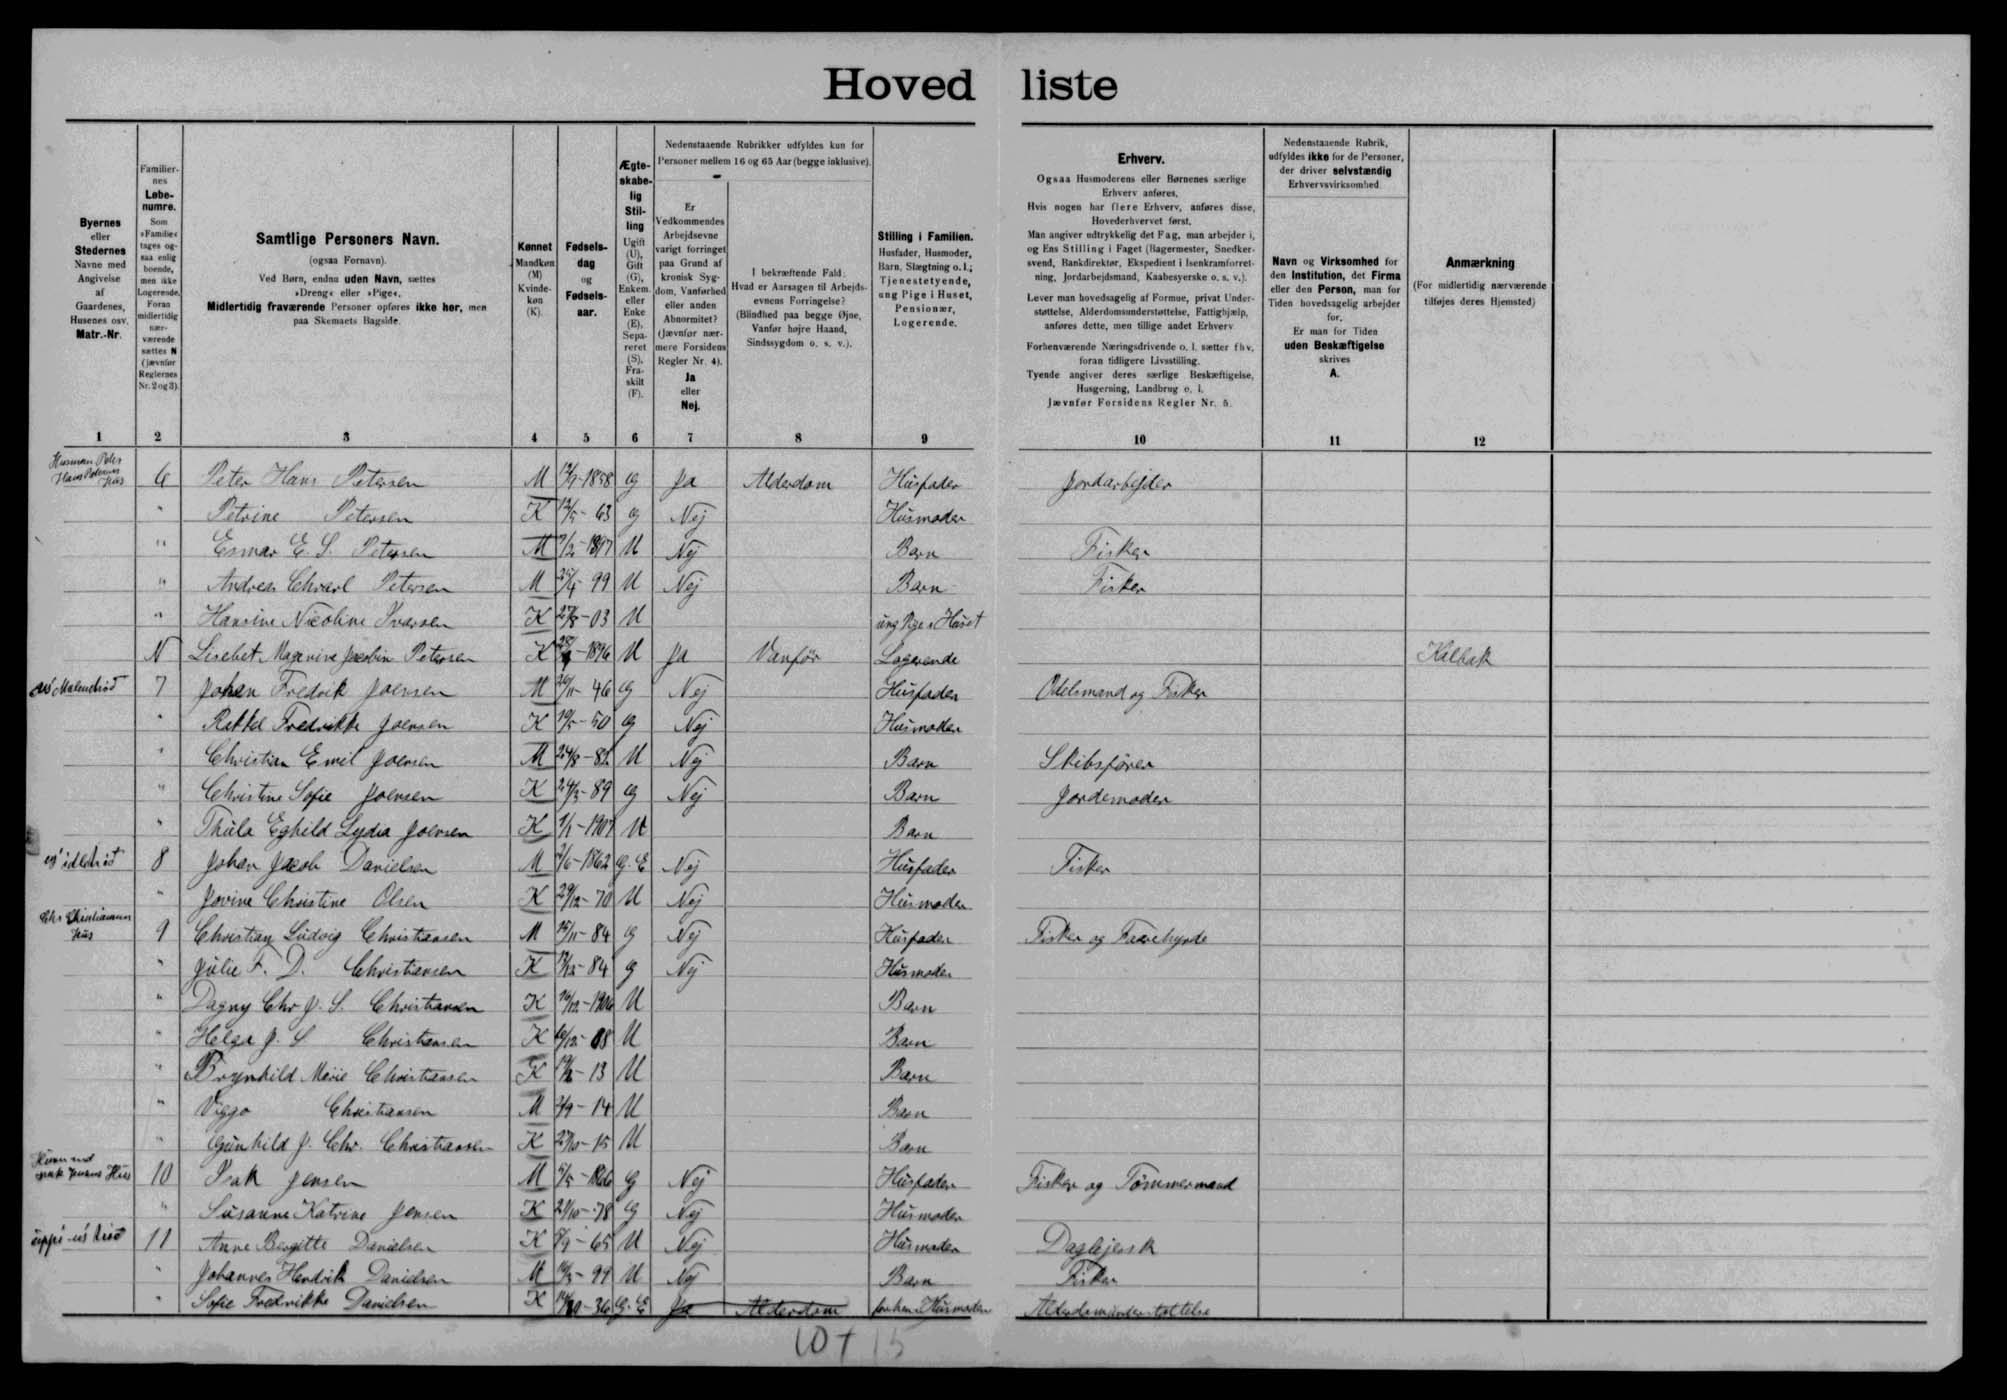 Hovedliste
Byernes eller Stedernes Navne med Angivelse af Gaardenes, Husenes osv. Matr.-Nr.
Familiernes Løbenumre. Som »Familie« tages ogsaa enlig boende, men ikke Logerende. Foran midlertidig nærværende sættes N (jævnfør Reglernes Nr. 2 og 3).
Samtlige Personers Navn. (ogsaa Fornavn). Ved Børn, endnu uden Navn, sættes »Dreng« eller »Pige«. Midlertidig fraværende Personer opføres ikke her, men paa Skemaets Bagside.
Kønnet Mandkøn (M) Kvindekøn (K).
Fødselsdag og Fødselsaar.
Ægteskabelig Stilling Ugift (U), Gift (G), Enkem. eller Enke (E), Separeret (S), Fraskilt (F).
Nedenstaaende Rubrikker udfyldes kun for Personer mellem 16 og 65 Aar (begge inklusive).
Er Vedkommendes Arbejdsevne varigt forringet paa Grund af kronisk Sygdom, Vanførhed eller anden Abnormitet? (Jævnfør nærmere Forsidens Regler Nr. 4). Ja eller Nej.
I bekræftende Fald: Hvad er Aarsagen til Arbejdsevnens Forringelse? (Blindhed paa begge Øjne, Vanfør højre Haand, Sindssygdom o. s. v.).
Stilling i Familien. Husfader, Husmoder, Barn, Slægtning o. l.; Tjenestetyende, ung Pige i Huset, Pensionær, Logerende.
Erhverv.
Ogsaa Husmoderens eller Børnenes særlige Erhverv anføres.
Hvis nogen har flere Erhverv, anføres disse, Hovederhvervet først.
Man angiver udtrykkelig det Fag, man arbejder i, og Ens Stilling i Faget (Bagermester, Snedkersvend, Bankdirektør, Ekspedient i Isenkramforretning, Jordarbejdsmand, Kaabesyerske o. s. v.).
Lever man hovedsagelig af Formue, privat Understøttelse, Alderdomsunderstøttelse, Fattighjælp, anføres dette, men tillige andet Erhverv
Forhenværende Næringsdrivende o. l. sætter fhv. foran tidligere Livsstilling.
Tyende angiver deres særlige Beskæftigelse, Husgerning, Landbrug o. l.
Jævnfør Forsidens Regler Nr. 5.
Nedenstaaende Rubrik, udfyldes ikke for de Personer, der driver selvstændig Erhvervsvirksomhed
Navn og Virksomhed for den Institution, det Firma eller den Person, man for Tiden hovedsagelig arbejder for.
Er man for Tiden uden Beskæftigelse skrives A.
Anmærkning (For midlertidig nærværende tilføjes deres Hjemsted)
1 2 3 4 5 6 7 8 9 10 11 12
6 Peter Hans Petersen M 1858 G Ja Alderdom Husfader Jordarbejder
" Petrine Petersen K 63 G Nej Husmoder
" Esmar E. S. Petersen M 1897 U Nej Barn Fisker
" Andreas Petersen M 99 U Nej Barn Fisker
" Hansine Nicoline Iversen K 03 U ung Pige i Huset
N Lisebet Magnine Jacobin Petersen K 1896 U Ja Vanför Logerende Kalbak
7 Johan Fredrik Joensen M 46 G Nej Husfader Odelsmand og Fisker
" Rakkel Fredrikke Joensen K 50 G Nej Husmoder
" Christian Emil Joensen M 24/8-82 U Nej Barn Skibsfører
" Christine Sofie Joensen K 89 G Nej Barn Jordemoder
" Thula Eghild Lydia Joensen K 1/1-1907 U Barn
8 Johan Jacob Danielsen M 1862 G. E Nej Husfader Fisker
" Jovine Christine Olsen K 29/12-70 U Nej Husmoder
Hus 9 Christian Ludvig Christiansen M 84 G Nej Husfader Fisker og Faarehyrde
" Julie F. D. Christiansen K 84 G Nej Husmoder
" Dagny Chr J. S. Christiansen K 1906 U Barn
" Helga J. S Christiansen K 08 U Barn
" Brynhild Marie Christiansen K 13 U Barn
" Viggo Christiansen M 14 U Barn
" Gunhild J. Chr. Christiansen K 27/10-15 U Barn
10 Isak Jensen M 1866 G Nej Husfader Fisker og Tömmermand
" Susanne Katrine Jensen K 78 G Nej Husmoder
11 Anne Bergitte Danielsen K 65 U Nej Husmoder Daglejersk
" Johannes Hendrik Danielsen M 99 U Nej Barn Fisker
" Sofie Fredrikke Danielsen K 36 G. E Ja Alderdom Husmoder Alderdomsunderstöttelse
10 + 15